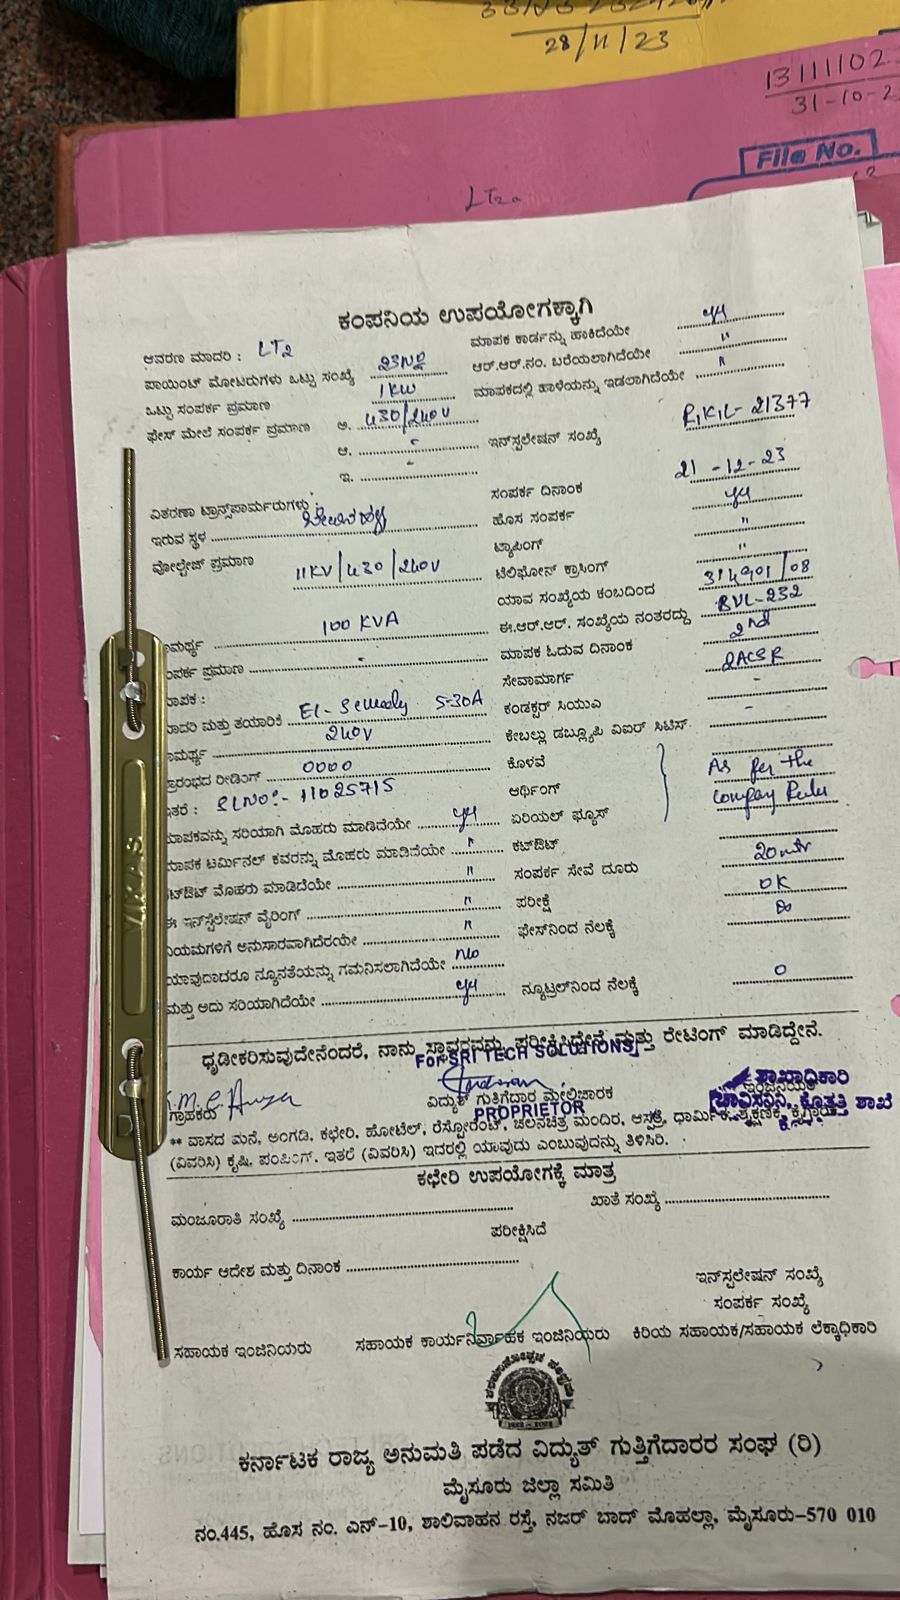 28/11/23
13111102
31-10-2
File No.
LT2a
ಕಂಪನಿಯ ಉಪಯೋಗಕ್ಕಾಗಿ
ಆವರಣ ಮಾದರಿ : LT2
ಮಾಪಕ ಕಾರ್ಡನ್ನು ಹಾಕಿದೆಯೇ
ಪಾಯಿಂಟ್ ಮೋಟರುಗಳು ಒಟ್ಟು ಸಂಖ್ಯೆ
ಆರ್.ಆರ್.ನಂ. ಬರೆಯಲಾಗಿದೆಯೇ "
ಒಟ್ಟು ಸಂಪರ್ಕ ಪ್ರಮಾಣ 1KW
ಮಾಪಕದಲ್ಲಿ ಹಾಳೆಯನ್ನು ಇಡಲಾಗಿದೆಯೇ "
ಫೇಸ್ ಮೇಲೆ ಸಂಪರ್ಕ ಪ್ರಮಾಣ ಅ. 430/240V
ಆ. -
ಇನ್‌ಸ್ಪಲೇಷನ್ ಸಂಖ್ಯೆ 21377
ಇ. -
ಸಂಪರ್ಕ ದಿನಾಂಕ 21-12-23
ವಿತರಣಾ ಟ್ರಾನ್ಸ್‌ಪಾರ್ಮರುಗಳು :
ಹೊಸ ಸಂಪರ್ಕ
ಇರುವ ಸ್ಥಳ
ಟ್ಯಾಪಿಂಗ್ "
ವೋಲ್ಟೇಜ್ ಪ್ರಮಾಣ 11KV/430/240V
ಟೆಲಿಫೋನ್ ಕ್ರಾಸಿಂಗ್ "
ಯಾವ ಸಂಖ್ಯೆಯ ಕಂಬದಿಂದ 314901/08
100 KVA
ಈ.ಆರ್.ಆರ್. ಸಂಖ್ಯೆಯ ನಂತರದ್ದು BVL-232
ಸಂಪರ್ಕ ಪ್ರಮಾಣ -
ಮಾಪಕ ಓದುವ ದಿನಾಂಕ 2nd
ಮಾಪಕ :
ಸೇವಾಮಾರ್ಗ 2ACSR
ಮಾದರಿ ಮತ್ತು ತಯಾರಿಕೆ 5-30A
ಕಂಡಕ್ಟರ್ ಸಿಯುಎ -
240V
ಕೇಬಲ್ಲು ಡಬ್ಲ್ಯೂಪಿ ವಿಐರ್ ಸಿಟಿಸ್ -
ಪ್ರಾರಂಭದ ರೀಡಿಂಗ್ 0000
ಕೊಳವೆ
ಇತರೆ : SLNO:- 11025715
ಆರ್ಥಿಂಗ್ As per the
ಮಾಪಕವನ್ನು ಸರಿಯಾಗಿ ಮೊಹರು ಮಾಡಿದೆಯೇ
ಏರಿಯಲ್ ಫ್ಯೂಸ್ Company Rules
ಮಾಪಕ ಟರ್ಮಿನಲ್ ಕವರನ್ನು ಮೊಹರು ಮಾಡಿದೆಯೇ "
ಕಟ್‌ಔಟ್
ಕಟ್‌ಔಟ್ ಮೊಹರು ಮಾಡಿದೆಯೇ "
ಸಂಪರ್ಕ ಸೇವೆ ದೂರು 20mtr
ಈ ಇನ್‌ಸ್ಟೆಲೇಷನ್ ವೈರಿಂಗ್ "
ಪರೀಕ್ಷೆ OK
ನಿಯಮಗಳಿಗೆ ಅನುಸಾರವಾಗಿದೆರಯೇ "
ಫೇಸ್‌ನಿಂದ ನೆಲಕ್ಕೆ
ಯಾವುದಾದರೂ ನ್ಯೂನತೆಯನ್ನು ಗಮನಿಸಲಾಗಿದೆಯೇ No
ಮತ್ತು ಅದು ಸರಿಯಾಗಿದೆಯೇ
ನ್ಯೂಟ್ರಲ್‌ನಿಂದ ನೆಲಕ್ಕೆ 0
ಧೃಡೀಕರಿಸುವುದೇನೆಂದರೆ, ನಾನು ಸ್ಥಾವರವನ್ನು ಪರೀಕ್ಷಿಸಿದ್ದೇನೆ ಮತ್ತು ರೇಟಿಂಗ್ ಮಾಡಿದ್ದೇನೆ.
For SRI TECH SOLUTIONS
ಶಾಖಾಧಿಕಾರಿ
ಗ್ರಾಹಕರು
ವಿದ್ಯುತ್ ಗುತ್ತಿಗೆದಾರ ಮೇಲ್ವಿಚಾರಕ
ಇಂಜಿನಿಯರ್
PROPRIETOR
ಚಾವಿಸನಿನಿ, ಕೊತ್ತತ್ತಿ ಶಾಖೆ
** ವಾಸದ ಮನೆ, ಅಂಗಡಿ, ಕಛೇರಿ, ಹೋಟೆಲ್, ರೆಸ್ಟೋರೆಂಟ್, ಚಲನಚಿತ್ರ ಮಂದಿರ, ಆಸ್ಪತ್ರೆ, ಧಾರ್ಮಿಕ, ಶೈಕ್ಷಣಿಕ, ಕೈಗಾರಿಕೆ
(ವಿವರಿಸಿ) ಕೃಷಿ, ಪಂಪಿಂಗ್, ಇತರೆ (ವಿವರಿಸಿ) ಇದರಲ್ಲಿ ಯಾವುದು ಎಂಬುವುದನ್ನು ತಿಳಿಸಿರಿ.
ಕಛೇರಿ ಉಪಯೋಗಕ್ಕೆ ಮಾತ್ರ
ಮಂಜೂರಾತಿ ಸಂಖ್ಯೆ
ಖಾತೆ ಸಂಖ್ಯೆ
ಪರೀಕ್ಷಿಸಿದೆ
ಕಾರ್ಯ ಆದೇಶ ಮತ್ತು ದಿನಾಂಕ
ಇನ್‌ಸ್ಪಲೇಷನ್ ಸಂಖ್ಯೆ
ಸಂಪರ್ಕ ಸಂಖ್ಯೆ
ಸಹಾಯಕ ಇಂಜಿನಿಯರು ಸಹಾಯಕ ಕಾರ್ಯನಿರ್ವಾಹಕ ಇಂಜಿನಿಯರು ಕಿರಿಯ ಸಹಾಯಕ/ಸಹಾಯಕ ಲೆಕ್ಕಾಧಿಕಾರಿ
ಕರ್ನಾಟಕ ರಾಜ್ಯ ಅನುಮತಿ ಪಡೆದ ವಿದ್ಯುತ್ ಗುತ್ತಿಗೆದಾರರ ಸಂಘ (ರಿ)
ಮೈಸೂರು ಜಿಲ್ಲಾ ಸಮಿತಿ
ನಂ.445, ಹೊಸ ನಂ. ಎನ್-10, ಶಾಲಿವಾಹನ ರಸ್ತೆ, ನಜರ್ ಬಾದ್ ಮೊಹಲ್ಲಾ, ಮೈಸೂರು-570 010
V.R.A.S